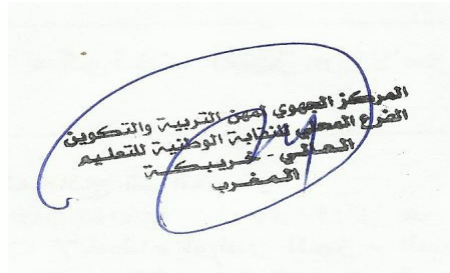 المركز الجهوي لمهن التربية والتكوين
الفرع المحلي للنقابة الوطنية للتعليم
العالي - خريبكة
المغرب